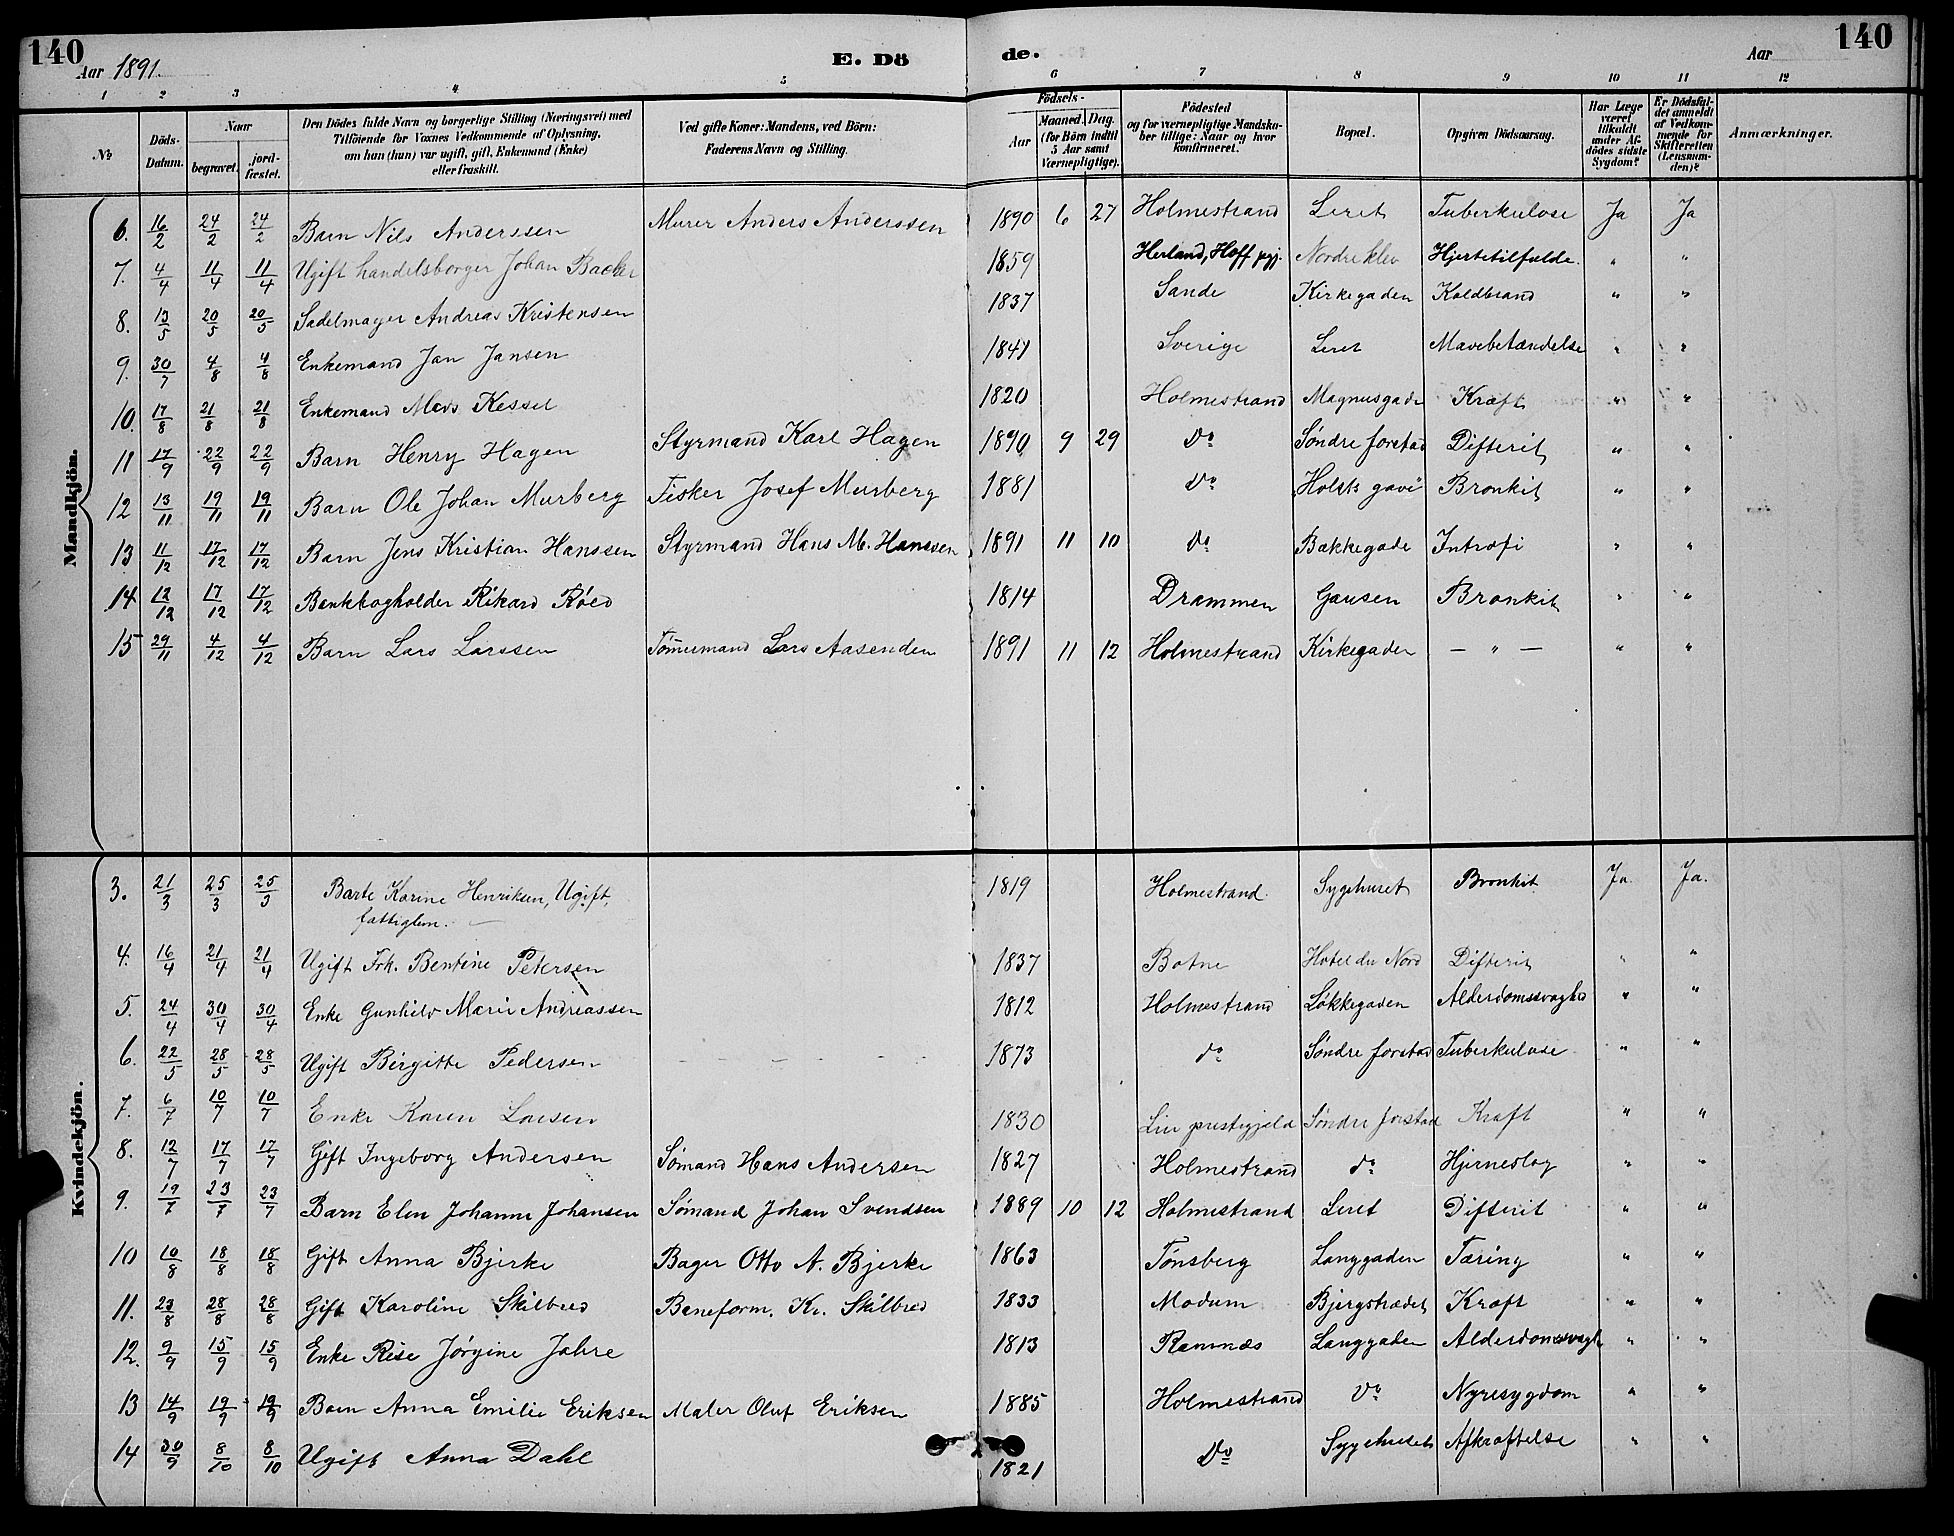 140 Aar 1891. E. Dö de. Aar 140
1 2 3 4 5 6 7 8 9 10 11 12
№ Döds-Datum. Naar begravet. jord-fæstet. Den Dödes fulde Navn og borgerlige Stilling (Næringsvei) med Tilföiende for Voxnes Vedkommende af Oplysning, om han (hun) var ugift, gift, Enkemand (Enke) eller fraskilt. Ved gifte Koner: Mandens, ved Börn: Faderens Navn og Stilling. Födsels- Aar Maaned. Dag. (for Börn indtil 5 Aar samt Værnepligtige). Födested og for værnepligtige Mandskaber tillige: Naar og hvor konfirmeret. Bopæl. Opgiven Dödsaarsag. Har Læge været tilkaldt under Afdödes sidste Sygdom? Er Dödsfaldet anmeldt af Vedkommende for Skifteretten (Lensmanden)? Anmærkninger.
Mandkjön.
6. 16/2 24/2 24/2 Barn Nils Anderssen Murer Anders Anderssen 1890 6 27 Holmestrand Leret Tuberkulose Ja Ja
7. 4/4 11/4 11/4 Ugift handelsborger Johan Backer 1859 Herland, Hoff pgj. Nordre klev Hjertetilfælde. " "
8. 13/5 20/5 20/5 Sadelmager Andreas Kristensen 1837 Sande Kirkegaden Koldbrand " "
9. 30/7 4/8 4/8 Enkemand Jan Jansen 1841 Sverige Leret Mavebetændelse " "
10. 17/8 21/8 21/8 Enkemand Mads Kessel 1820 Holmestrand Magnusgade Kræft " "
11 17/9 22/9 22/9 Barn Henry Hagen Styrmand Karl Hagen 1890 9 29 Do Søndre forstad Difterit " "
12 13/11 19/11 19/11 Barn Ole Johan Murberg Fisker Josef Murberg 1881 Do Holsts gave Bronkit " "
13 11/12 17/12 17/12 Barn Jens Kristian Hanssen Styrmand Hans M. Hanssen 1891 11 10 do Bakkegade Introfi " "
14 12/12 17/12 17/12 Bankbogholder Rikard Röed 1814 Drammen Gausen Bronkit " "
15 29/11 4/12 4/12 Barn Lars Larssen Tømmermand Lars Aasenden 1891 11 12 Holmestrand Kirkegaden — " — " "
Kvindekjön.
3. 21/3 25/3 25/3 Barte Karine Henriksen, Ugift, 1819 Holmestrand Sygehuset Bronkit Ja. Ja.
fattiglem.
4. 16/4 21/4 21/4 Ugift Frk. Bentine Petersen 1837 Botne Hotel du Nord Difterit " "
5. 24/4 30/4 30/4 Enke Gunhild Marie Andreassen 1812 Holmestrand Løkkegaden Alderdomssvaghed " "
6. 22/5 28/5 28/5 Ugift Birgitte Pedersen 1873 do Søndre forstad Tuberkulose " "
7. 6/7 10/7 10/7 Enke Karen Larsen 1830 Lier prestegjeld Søndre forstad Kræft " "
8. 12/7 17/7 17/7 Gift Ingeborg Andersen Sømand Hans Andersen 1827 Holmestrand do Hjerneslag " "
9. 19/7 23/7 23/7 Barn Elen Johanne Johansen Sømand Johan Svendsen 1889 10 12 Holmestrand Leret Difterit " "
10 10/8 18/8 18/8 Gift Anna Bjerke Bager Otto A. Bjerke 1863 Tønsberg Langgaden Tæring " "
11. 23/8 28/8 28/8 Gift Karoline Skilbred Baneform. Kr. Skilbred 1833 Modum Bjergstrædet Kræft " "
12. 9/9 15/9 15/9 Enke Rise Jørgine Jahre 1813 Ramnæs Langgaden Alderdomssvagh " "
13 14/9 19/9 19/9 Barn Anna Emilie Eriksen Maler Oluf Eriksen 1885 Holmestrand Do Nyresygdom " "
14 30/9 8/10 8/10 Ugift Anna Dahl 1821 Do Sygehuset Afkræftelse " "